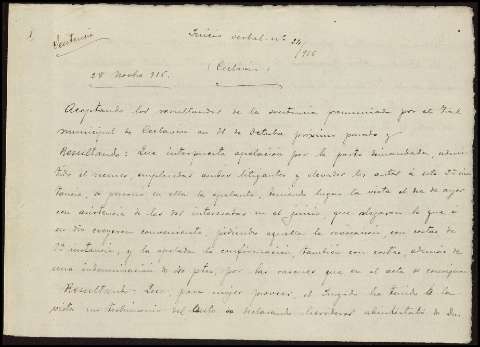 Sentencia
Juicio verbal nº 24
/916
28 Novbre 916.
(Ceclavin)
Aceptando los resultandos de la sentencia pronunciada por el Tral
municipal de Ceclavin en 31 de Octubre próximo pasado y
Resultando: Que interpuesta apelacion por la parte demandada, admi-
tido el recurso, emplazadas ambos litigantes y elevados los autos á esta 2ª ins-
tancia, se personó en ella la apelante, teniendo lugar la vista el dia de ayer
con asistencia de los dos interesados en el juicio, que alegaron lo que á
su dro creyeron conveniente, pidiendo aquella la revocacion, con costas de
2ª instancia, y la apelada la confirmacion, tambien con costas, además de
una indemnizacion de ptas, por las razones que en el acta se consignan
Resultando: Que, para mejor proveer, el Juzgado ha tenido á la
vista un testimonio del auto declarando herederos abintestato de Don